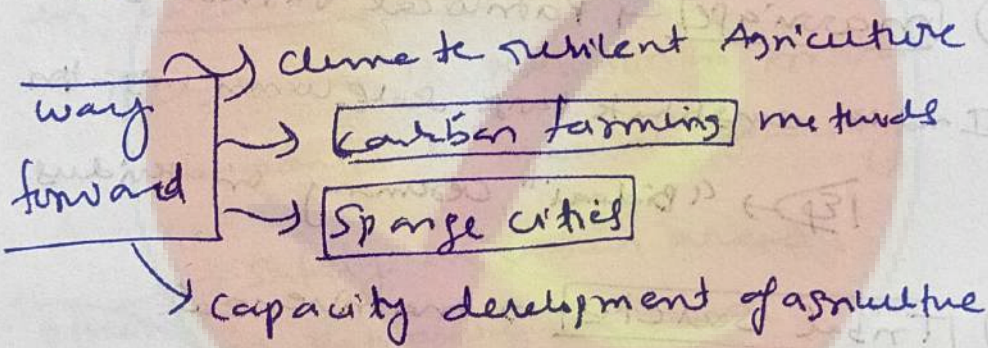 climate resilient Agriculture
way forward
carbon farming methods
Sponge cities
capacity development of agriculture